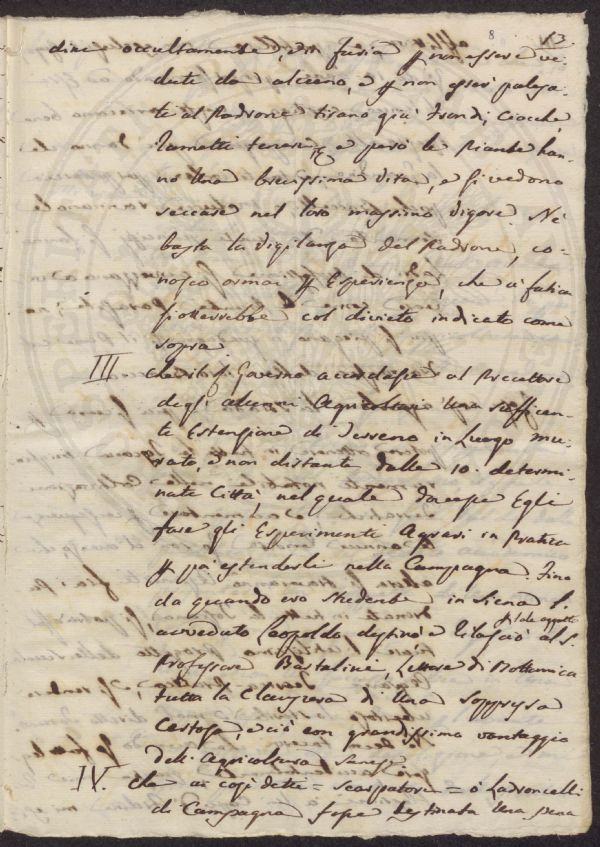 8 13
dini occultamente, ed in furia p non essere ve-
duti da alcuno, e p non esser palesa-
ti al Padrone tirano giù frondi, Ciocche,
Rametti teneri, e però le Piante han-
no Una brevissima Vita, e si vedono
seccare nel loro massimo Vigore. Nè
basta la Vigilanza del Padrone, co-
nosco ormai p Esperienza, che a fatica
si otterrebbe col divieto indicato come
sopra
III che il Governo accordasse al Precettore
degli alunni Agricoltori Una sufficien-
te Estensione di Terreno in Luogo mu-
rato, e non distante dalle 10. determi-
nate Città, nel quale dovesse Egli
fare gli Esperimenti Agrari in Pratica
p poi estenderli nella Campagna. Fino
da quando ero Studente in Siena l'
avveduto Leopoldo destinò e rilasciò al S.
p tale oggetto
Professore Bastalini, Lettore di Bottanica
tutta la Clausura di Una soppressa
Certosa, e ciò con grandissimo vantaggio
dell'Agricoltura Sanese
IV. che ai così detti = Scarpatori = o Ladroncelli
di Campagna fosse destinata Una pena